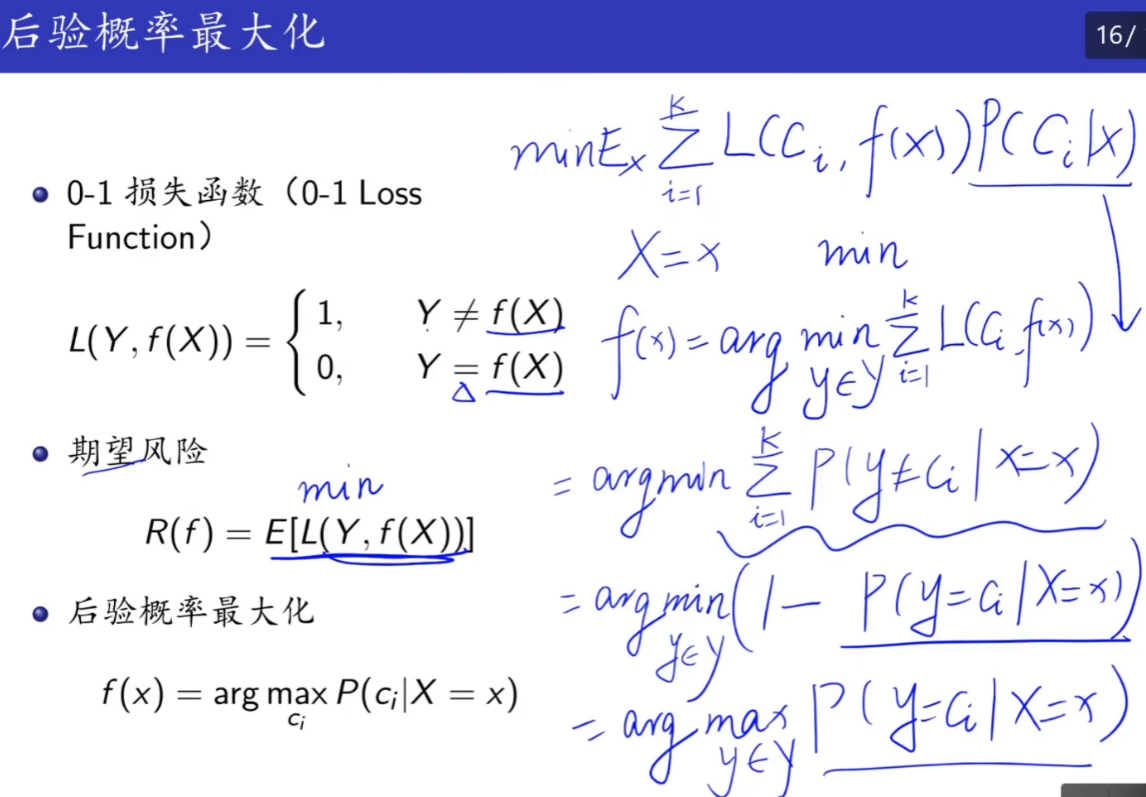 后验概率最大化
16/
0-1 损失函数（0-1 Loss
Function）
L(Y, f(X)) = { 1, Y ≠ f(X)
0, Y = f(X)
Δ
期望风险
min
R(f) = E[L(Y, f(X))]
后验概率最大化
f(x) = arg max P(c_i|X = x)
c_i
min E_x Σ_{i=1}^{k} L(C_i, f(x)) P(C_i|X)
X=x min
f(x) = arg min_{y∈Y} Σ_{i=1}^{k} L(C_i, f(x))
= argmin Σ_{i=1}^{k} P(y≠C_i | X=x)
= argmin_{y∈Y} (1 − P(y=C_i | X=x))
= arg max_{y∈Y} P(y=C_i | X=x)